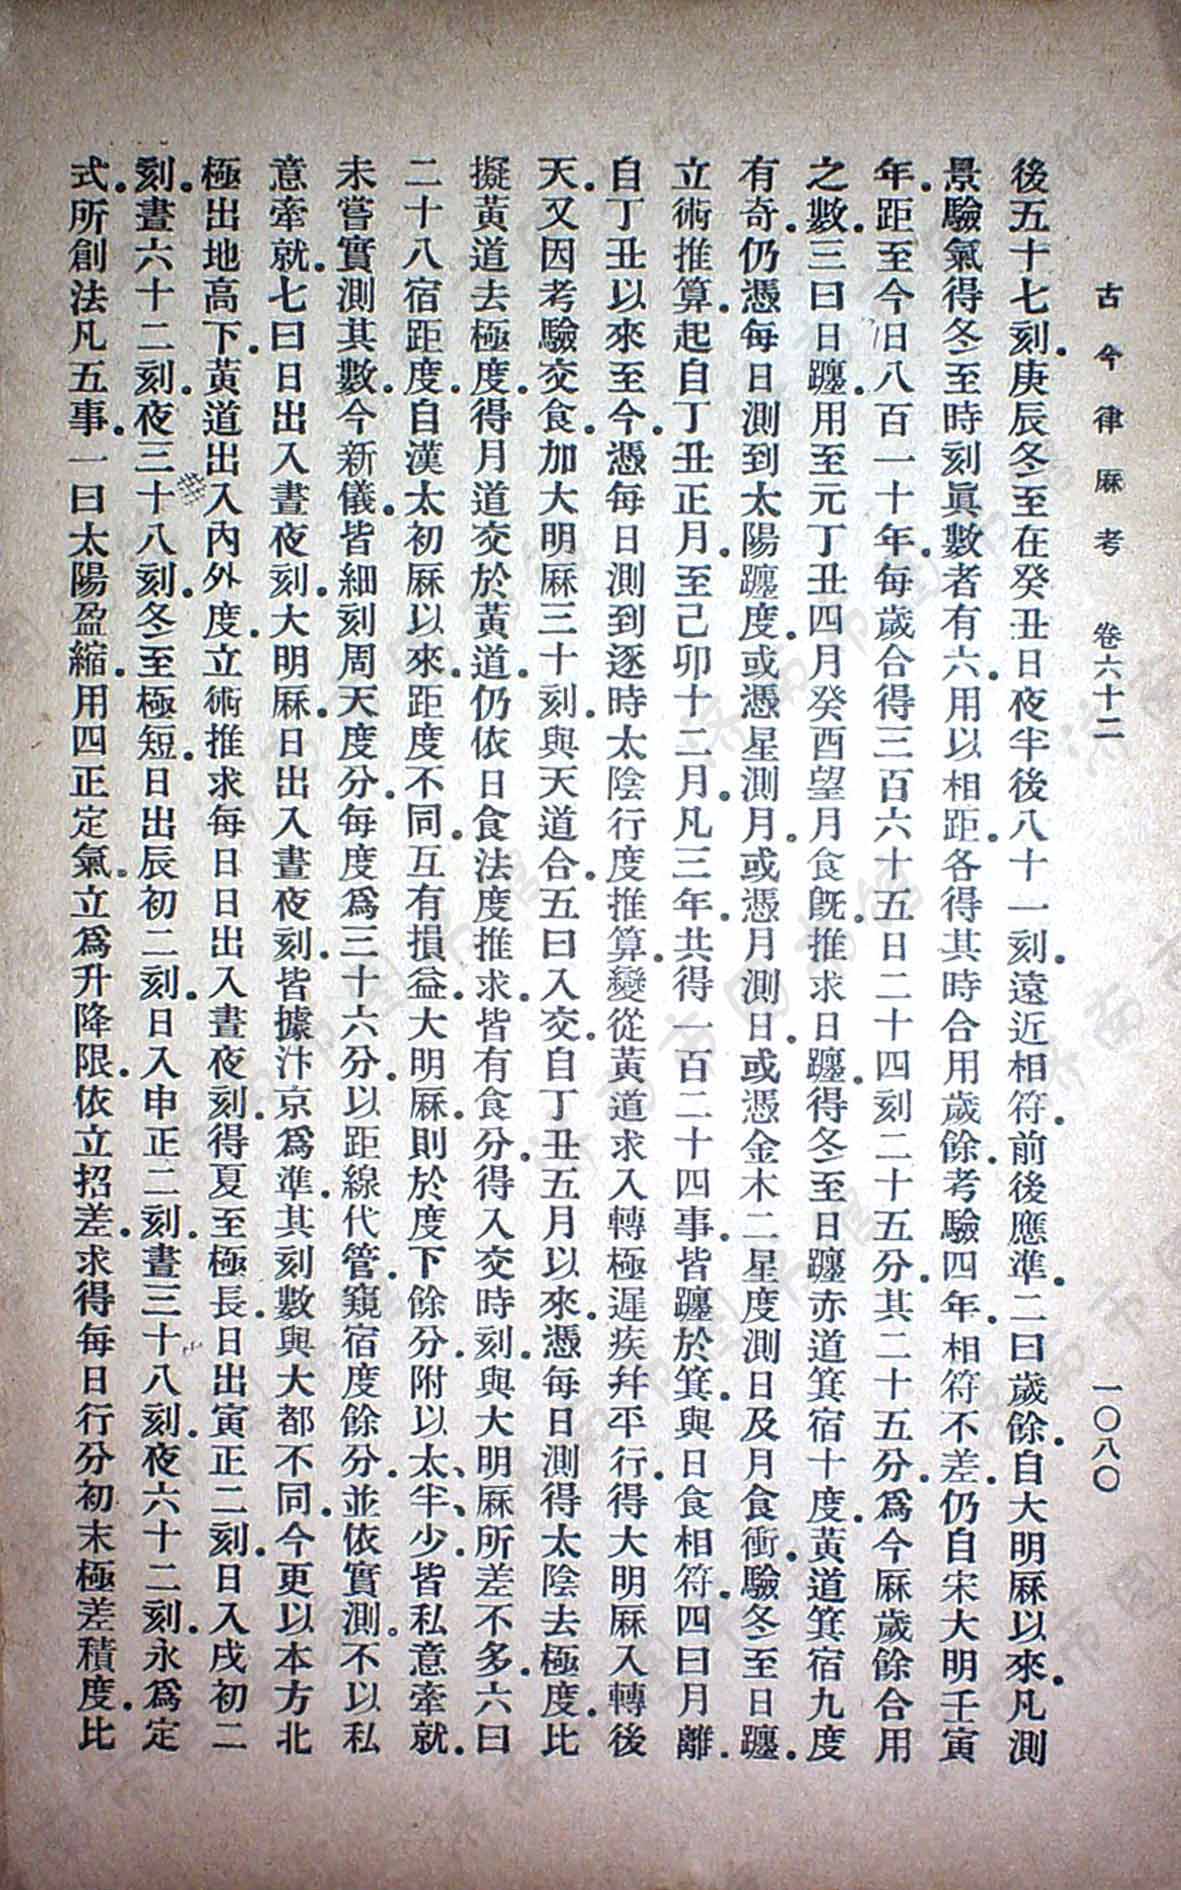 古今律厤考　卷六十二　一〇八〇
後五十七刻。庚辰冬至在癸丑日夜半後八十一刻。遠近相符。前後應準。二曰歲餘。自大明厤以來。凡測
景驗氣得冬至時刻眞數者有六。用以相距。各得其時合用歲餘。考驗四年。相符不差。仍自宋大明壬寅
年。距至今日八百一十年。每歲合得三百六十五日二十四刻二十五分。其二十五分。爲今厤歲餘合用
之數。三曰日躔。用至元丁丑四月癸酉望月食旣。推求日躔。得冬至日躔赤道箕宿十度。黃道箕宿九度
有奇。仍憑每日測到太陽躔度。或憑星測月。或憑月測日。或憑金木二星度測日及月食衝。驗冬至日躔。
立術推算。起自丁丑正月。至己卯十二月。凡三年。共得一百二十四事。皆躔於箕。與日食相符。四曰月離。
自丁丑以來至今。憑每日測到逐時太陰行度推算。變從黃道求入轉極遲疾幷平行。得大明厤入轉後
天。又因考驗交食。加大明厤三十刻。與天道合。五曰入交。自丁丑五月以來。憑每日測得太陰去極度。比
擬黃道去極度。得月道交於黃道。仍依日食法度推求。皆有食分。得入交時刻。與大明厤所差不多。六曰
二十八宿距度。自漢太初厤以來。距度不同。互有損益。大明厤。則於度下餘分。附以太、半、少。皆私意牽就。
未嘗實測其數。今新儀。皆細刻周天度分。每度爲三十六分。以距線代管。窺宿度餘分。並依實測。不以私
意牽就。七曰日出入晝夜刻。大明厤。日出入晝夜刻。皆據汴京爲準。其刻數與大都不同。今更以本方北
極出地高下。黃道出入內外度。立術推求每日日出入晝夜刻。得夏至極長。日出寅正二刻。日入戌初二
刻。晝六十二刻。夜三十八刻。冬至極短。日出辰初二刻。日入申正二刻。晝三十八刻。夜六十二刻。永爲定
式。所創法凡五事。一曰太陽盈縮。用四正定氣。立爲升降限。依立招差。求得每日行分初末極差積度。比